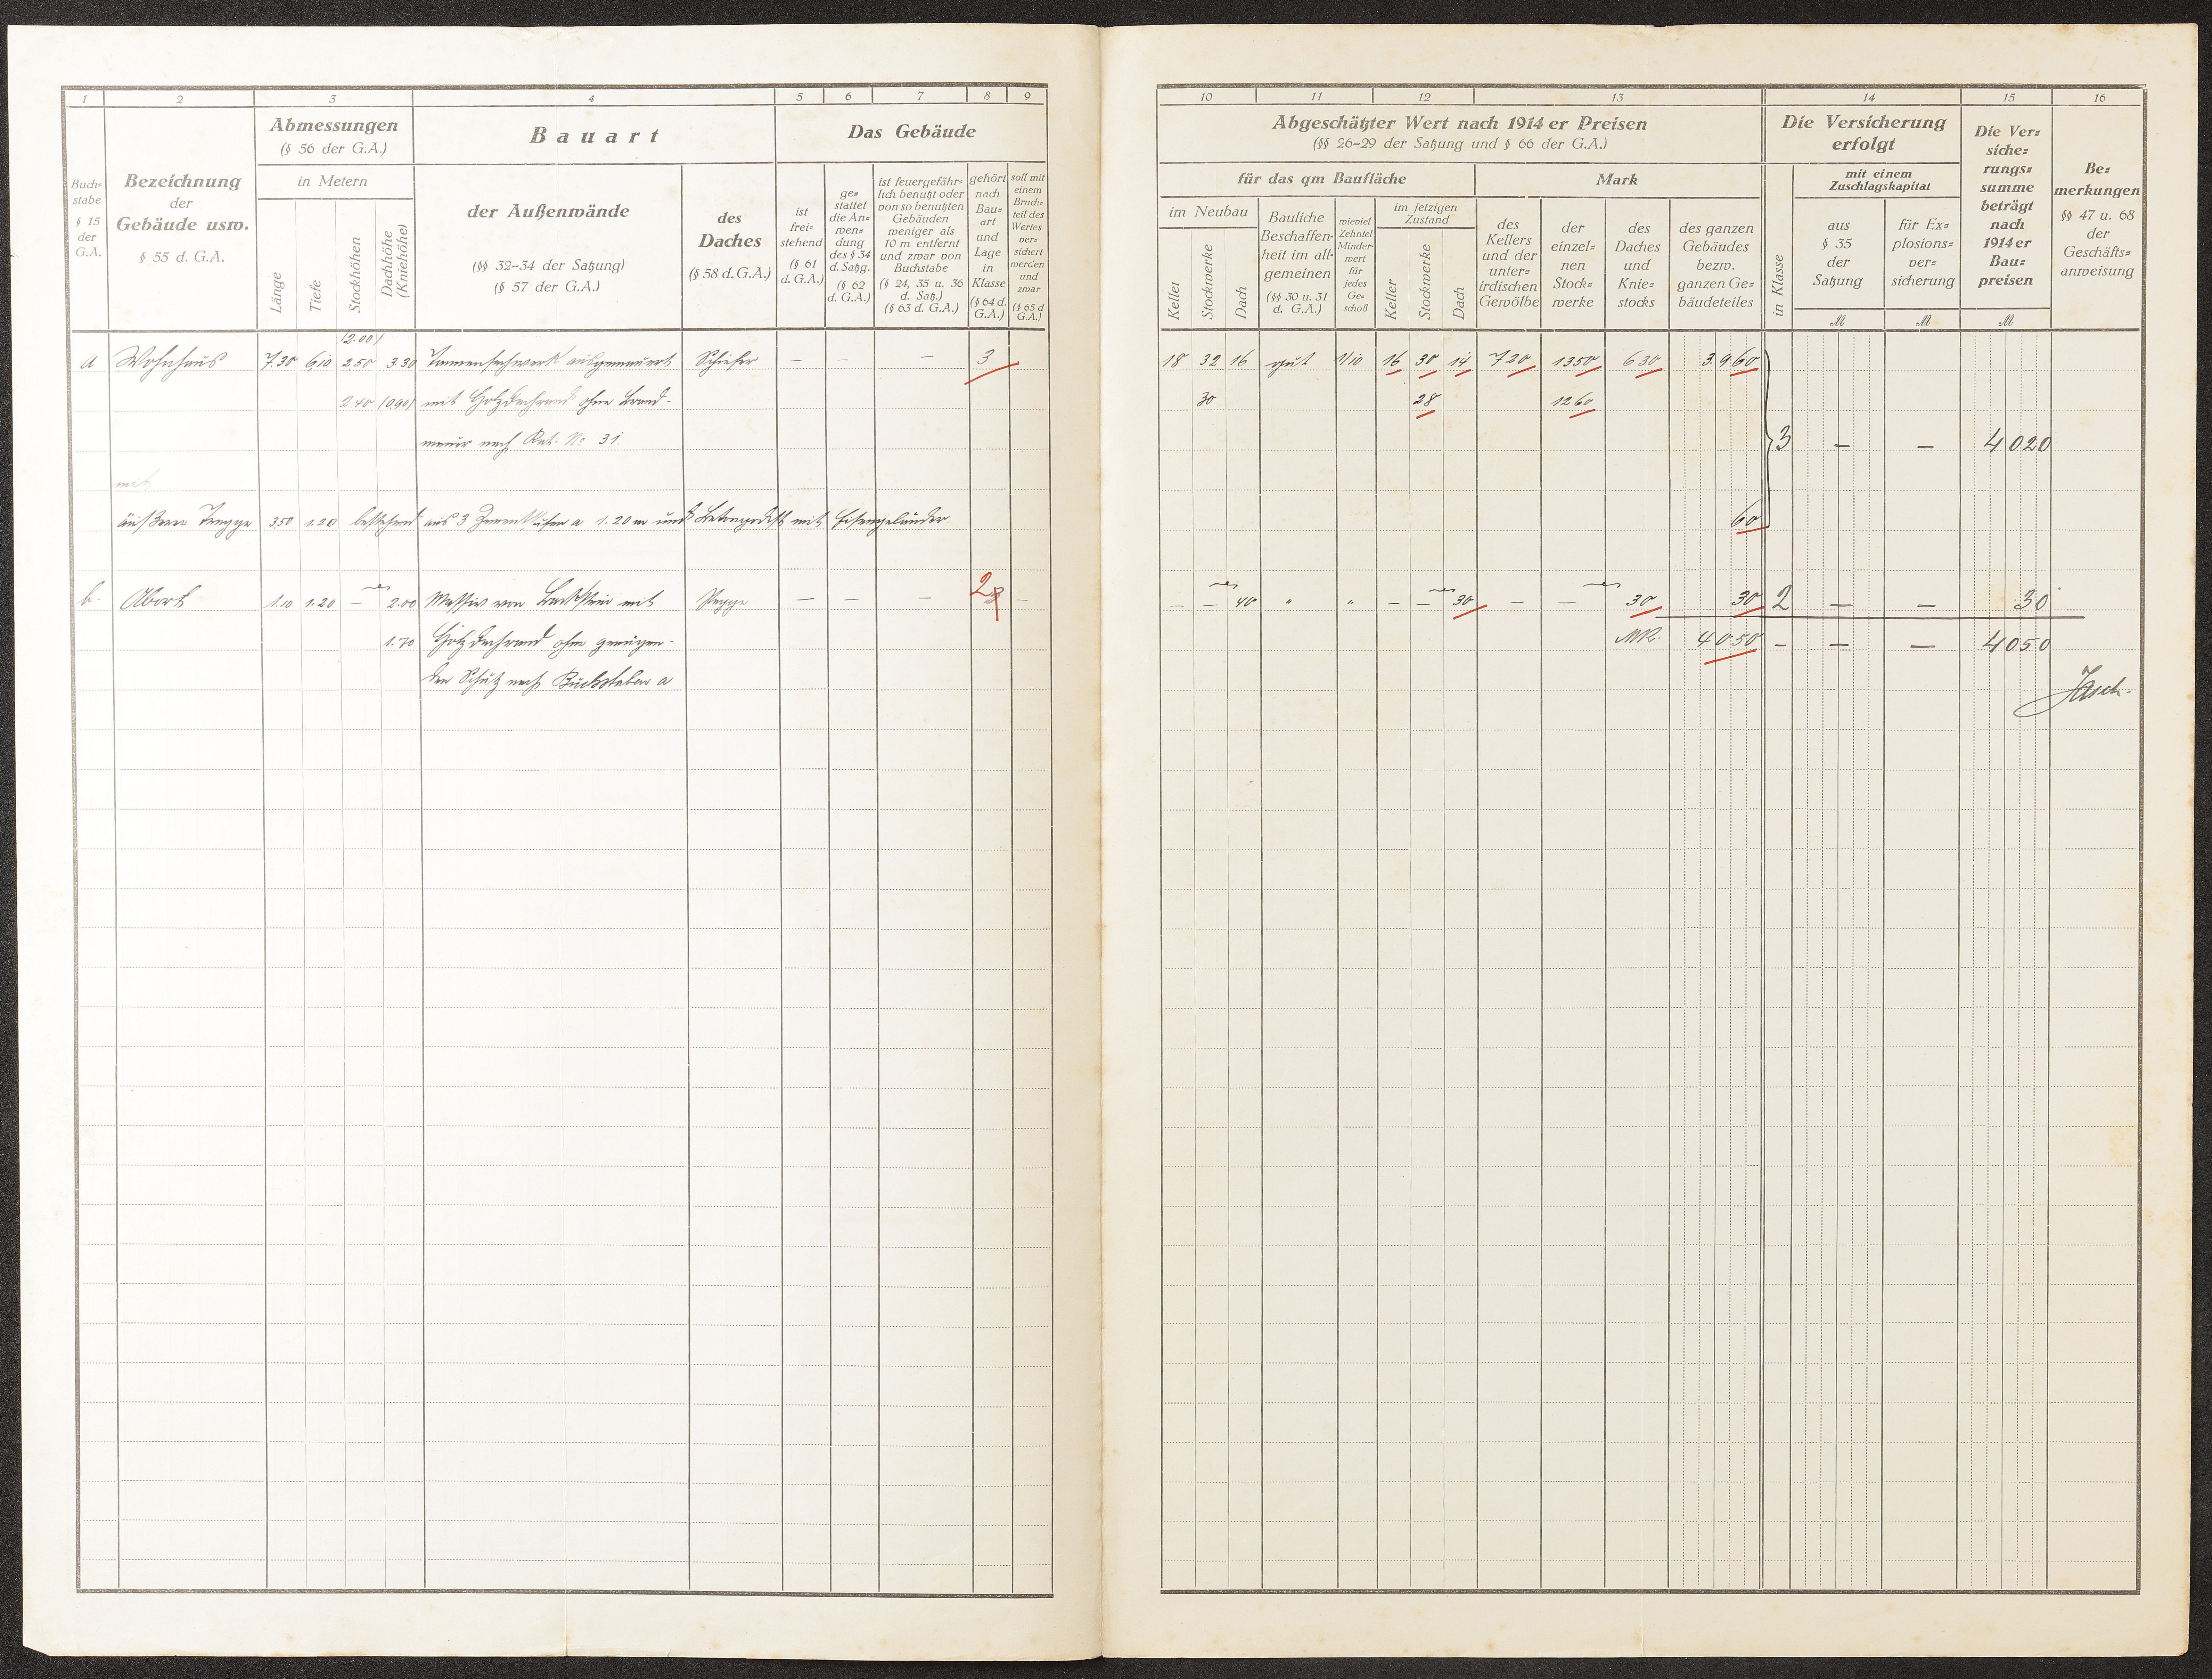 1 2 3 4 5 6 7 8 9
Buch=
stabe
§ 15
der
G.A.
Bezeichnung
der
Gebäude usw.
§ 55 d. G.A.
Abmessungen
(§ 56 der G.A.)
in Metern
Länge
Tiefe
Stockhöhen
Dachhöhe
(Kniehöhe)
Bauart
der Außenwände
(§§ 32–34 der Satzung)
(§ 57 der G.A.)
des
Daches
(§ 58 d. G.A.)
Das Gebäude
ist
frei=
stehend
(§ 61
d. G.A.)
ge=
stattet
die An=
wen=
dung
des § 34
d. Satzg.
(§ 62
d. G.A.)
ist feuergefähr=
lich benutzt oder
von so benutzten
Gebäuden
weniger als
10 m entfernt
und zwar von
Buchstabe
(§ 24, 35 u. 36
d. Satz.)
(§ 63 d. G.A.)
gehört
nach
Bau=
art
und
Lage
in
Klasse
(§ 64 d.
G.A.)
soll mit
einem
Bruch=
teil des
Wertes
ver=
sichert
werden
und
zwar
(§ 65 d
G.A.)
(2.00)
a Wohnhaus 7.30 6,10 2.50 3.30 Tannenfachwerk ausgemauert Schiefer — — — 3
2.40 (0.90) mit Holzdachrand ohne Brand-
mauer nach Kat. No 31.
mit
äußerer Treppe 3.50 1.20 bestehend aus 3 Zementstufen a 1.20 m und Betonpodest mit Eisengeländer
b. Abort 1.10 1.20 — 2.00 Massiv von Backstein mit Pappe — — — 2 3 —
1.70 Holzdachrand ohne genügen-
den Schutz nach Buchstaben a
10 11 12 13 14 15 16
Abgeschätzter Wert nach 1914 er Preisen
(§§ 26–29 der Satzung und § 66 der G.A.)
für das qm Baufläche
im Neubau
Keller
Stockwerke
Dach
Bauliche
Beschaffen-
heit im all-
gemeinen
(§§ 30 u. 31
d. G.A.)
wieviel
Zehntel
Minder-
wert
für
jedes
Ge-
schoß
im jetzigen
Zustand
Keller
Stockwerke
Dach
Mark
des
Kellers
und der
unter=
irdischen
Gewölbe
der
einzel=
nen
Stock=
werke
des
Daches
und
Knie=
stocks
des ganzen
Gebäudes
bezw.
ganzen Ge=
bäudeteiles
Die Versicherung
erfolgt
in Klasse
mit einem
Zuschlagskapital
aus
§ 35
der
Satzung
M
für Ex=
plosions=
ver=
sicherung
M
Die Ver=
siche=
rungs=
summe
beträgt
nach
1914 er
Bau=
preisen
M
Be=
merkungen
§§ 47 u. 68
der
Geschäfts=
anweisung
18 32 16 gut 1/10 16 30 14 720 1350 630 3.960
30 28 1260
3 — — 4020
60
— — 40 " " — — 30 — — 30 30 2 — — 30
MK. 4050 — — — 4050